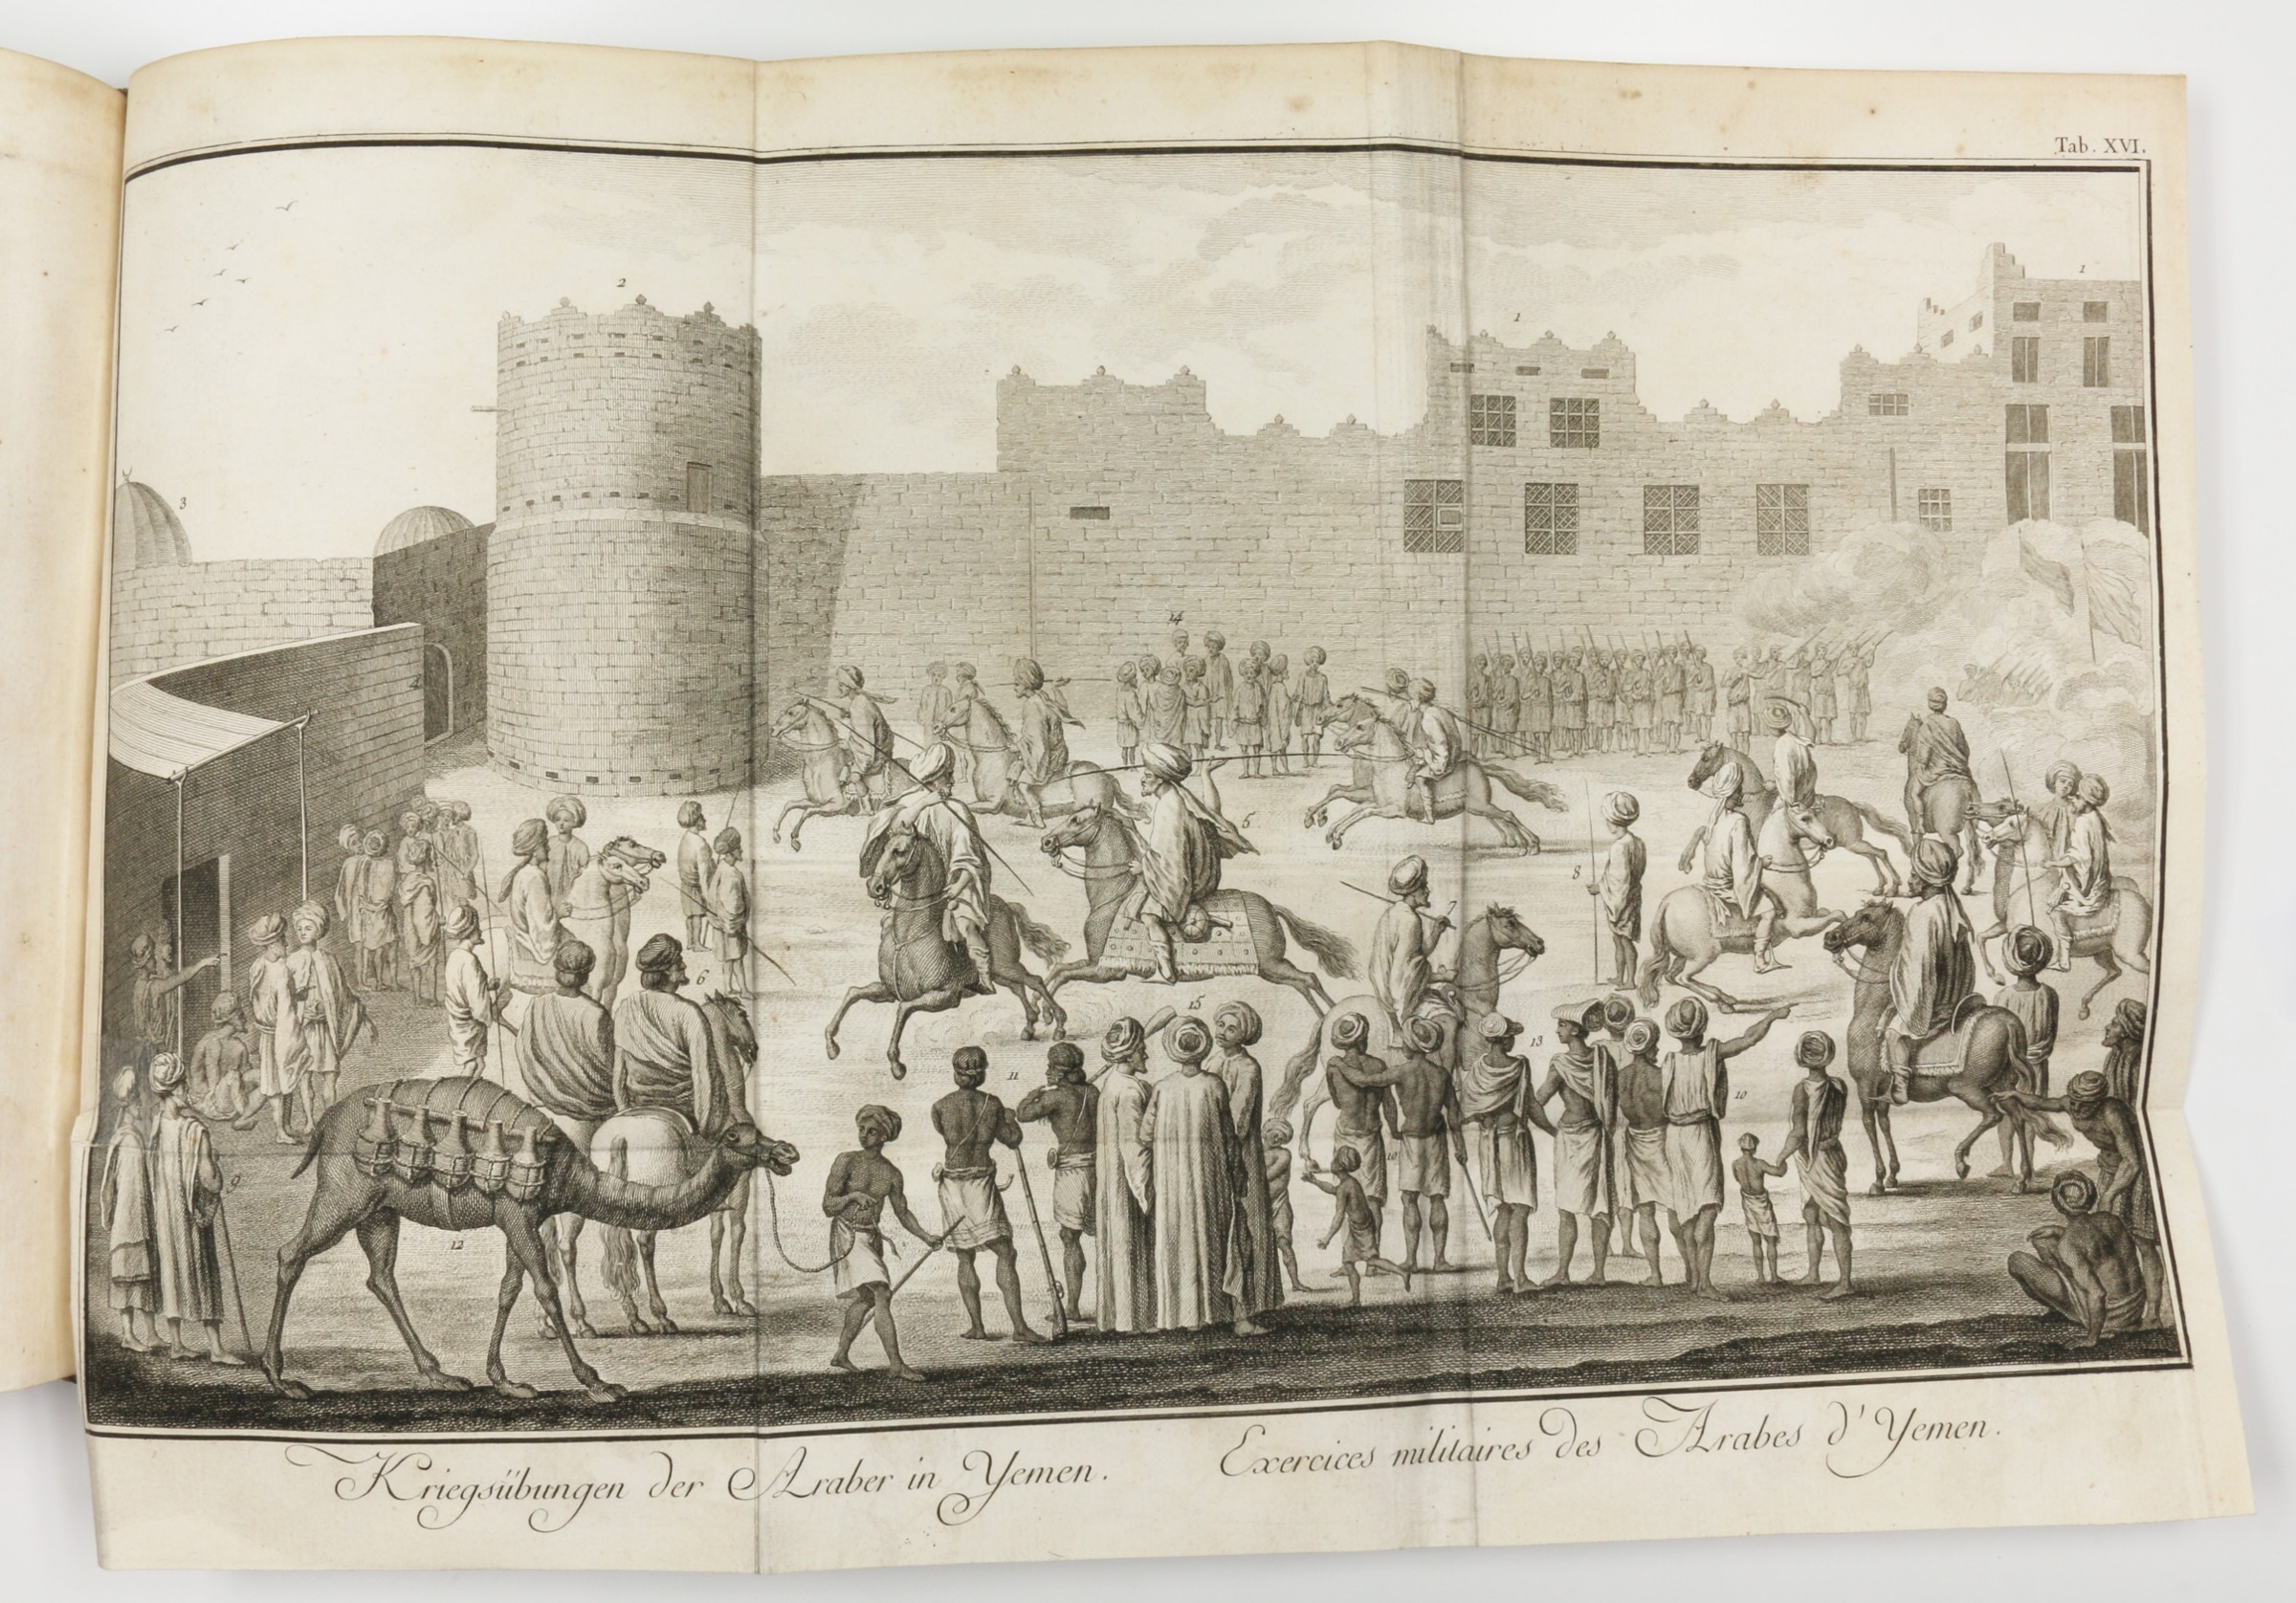 Tab. XVI.
1
2
1
3
14
4
5
8
7
6
15
13
11
10
10
9
12
Kriegsübungen der Araber in Yemen.
Exercices militaires des Arabes d'Yemen.